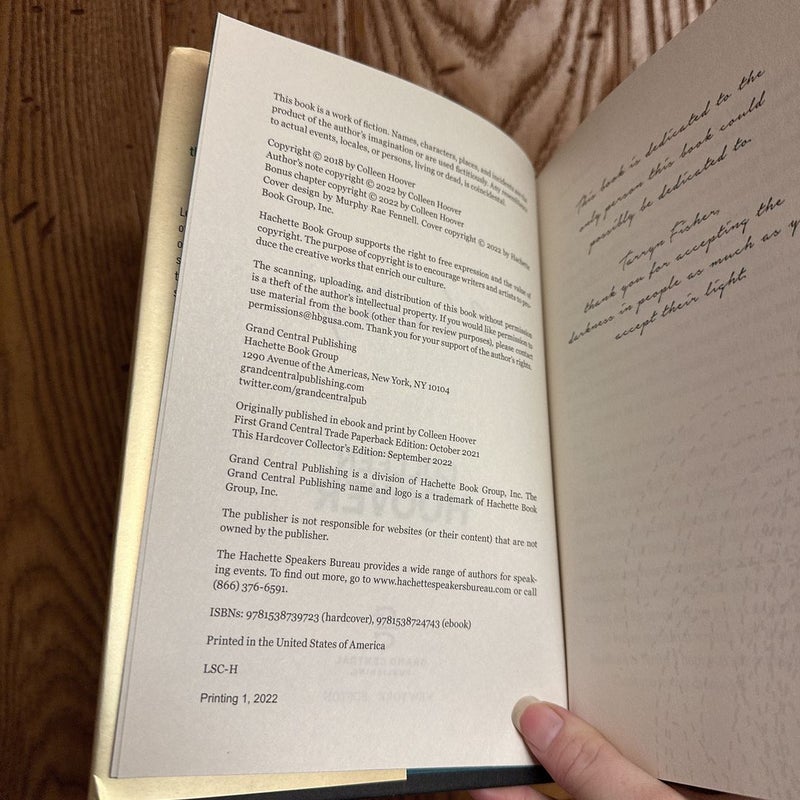 This book is a work of fiction. Names, characters, places, and incidents are the
product of the author's imagination or are used fictitiously. Any resemblance
to actual events, locales, or persons, living or dead, is coincidental.
Copyright © 2018 by Colleen Hoover
Author's note copyright © 2022 by Colleen Hoover
Bonus chapter copyright © 2022 by Colleen Hoover
Cover design by Murphy Rae Fennell. Cover copyright © 2022 by Hachette
Book Group, Inc.
Hachette Book Group supports the right to free expression and the value of
copyright. The purpose of copyright is to encourage writers and artists to pro-
duce the creative works that enrich our culture.
The scanning, uploading, and distribution of this book without permission
is a theft of the author's intellectual property. If you would like permission to
use material from the book (other than for review purposes), please contact
permissions@hbgusa.com. Thank you for your support of the author's rights.
Grand Central Publishing
Hachette Book Group
1290 Avenue of the Americas, New York, NY 10104
grandcentralpublishing.com
twitter.com/grandcentralpub
Originally published in ebook and print by Colleen Hoover
First Grand Central Trade Paperback Edition: October 2021
This Hardcover Collector's Edition: September 2022
Grand Central Publishing is a division of Hachette Book Group, Inc. The
Grand Central Publishing name and logo is a trademark of Hachette Book
Group, Inc.
The publisher is not responsible for websites (or their content) that are not
owned by the publisher.
The Hachette Speakers Bureau provides a wide range of authors for speak-
ing events. To find out more, go to www.hachettespeakersbureau.com or call
(866) 376-6591.
ISBNs: 9781538739723 (hardcover), 9781538724743 (ebook)
Printed in the United States of America
LSC-H
Printing 1, 2022
This book is dedicated to the
only person this book could
possibly be dedicated to.
Tarryn Fisher,
thank you for accepting the
darkness in people as much as y
accept their light.